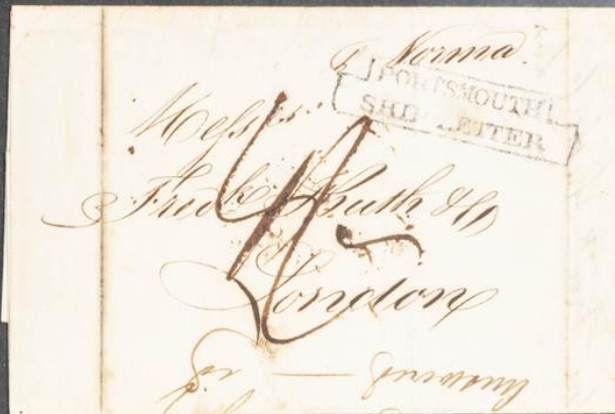 p Norma.
PORTSMOUTH
SHIP LETTER
Messrs
Fredk Huth & Co
London